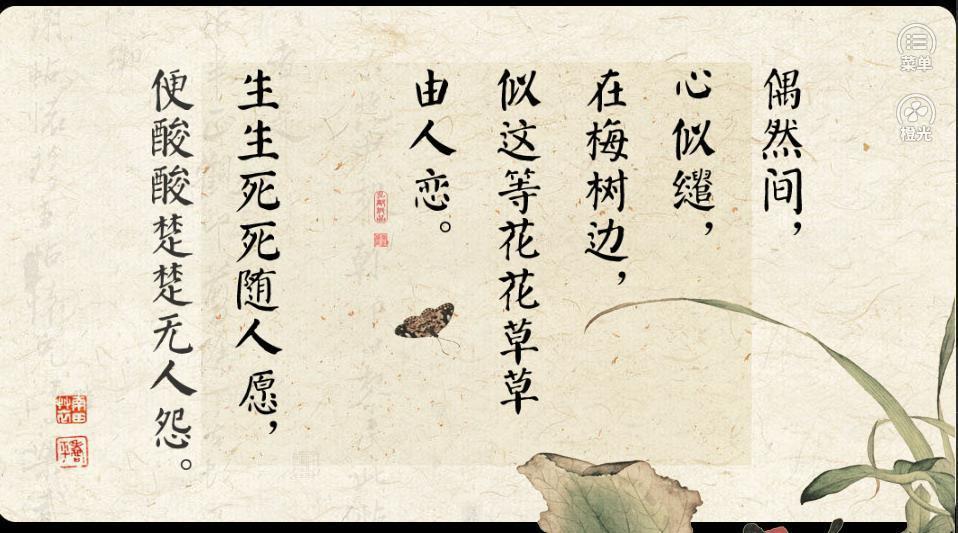 偶然间，
心似缱，
在梅树边，
似这等花花草草
由人恋。
生生死死随人愿，
便酸酸楚楚无人怨。
菜单
橙光